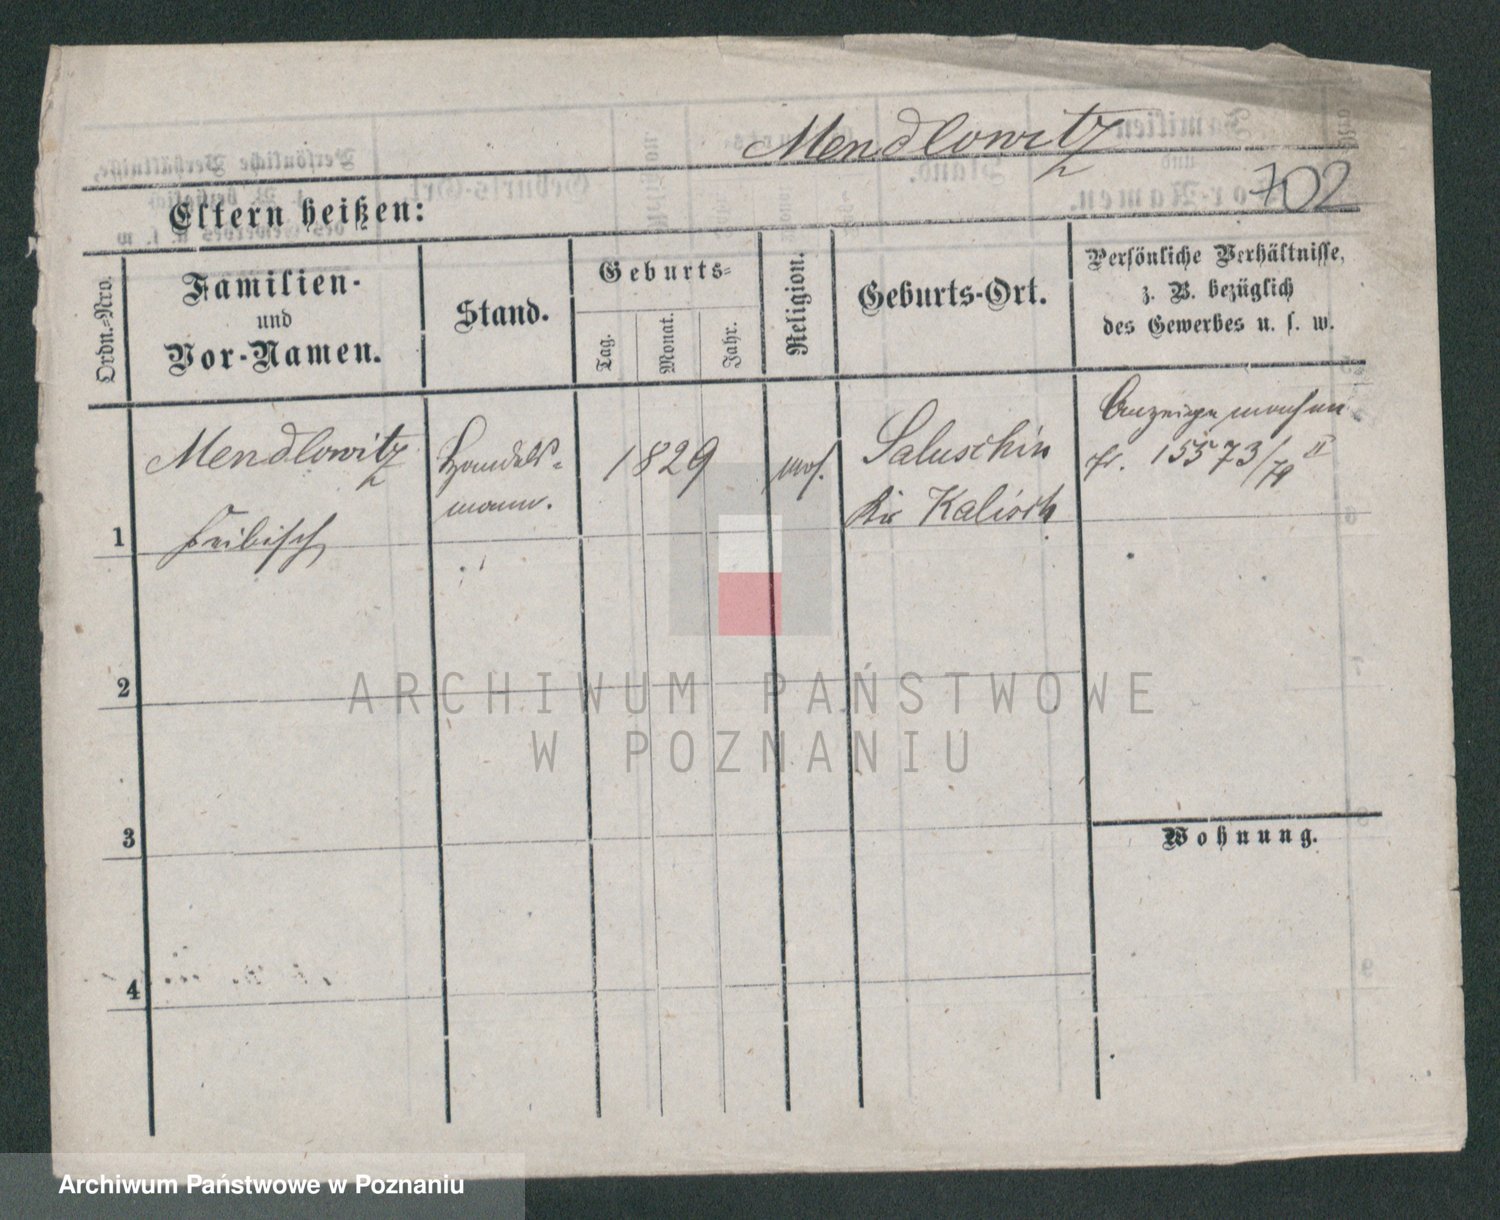 Mendlowitz
702
Eltern heißen:
Ordn.=Nro.
Familien-
und
Vor-Namen.
Stand.
Geburts=
Tag.
Monat.
Jahr.
Religion.
Geburts-Ort.
Persönliche Verhältnisse,
z. B. bezüglich
des Gewerbes u. s. w.
1
Mendlowitz
Feibisch
Handels=
mann.
1829
mos.
Saluschin
Kr. Kalisch
Anzeige
15573/79 II
2
3
4
Wohnung.
ARCHIWUM PAŃSTWOWE
W POZNANIU
Archiwum Państwowe w Poznaniu